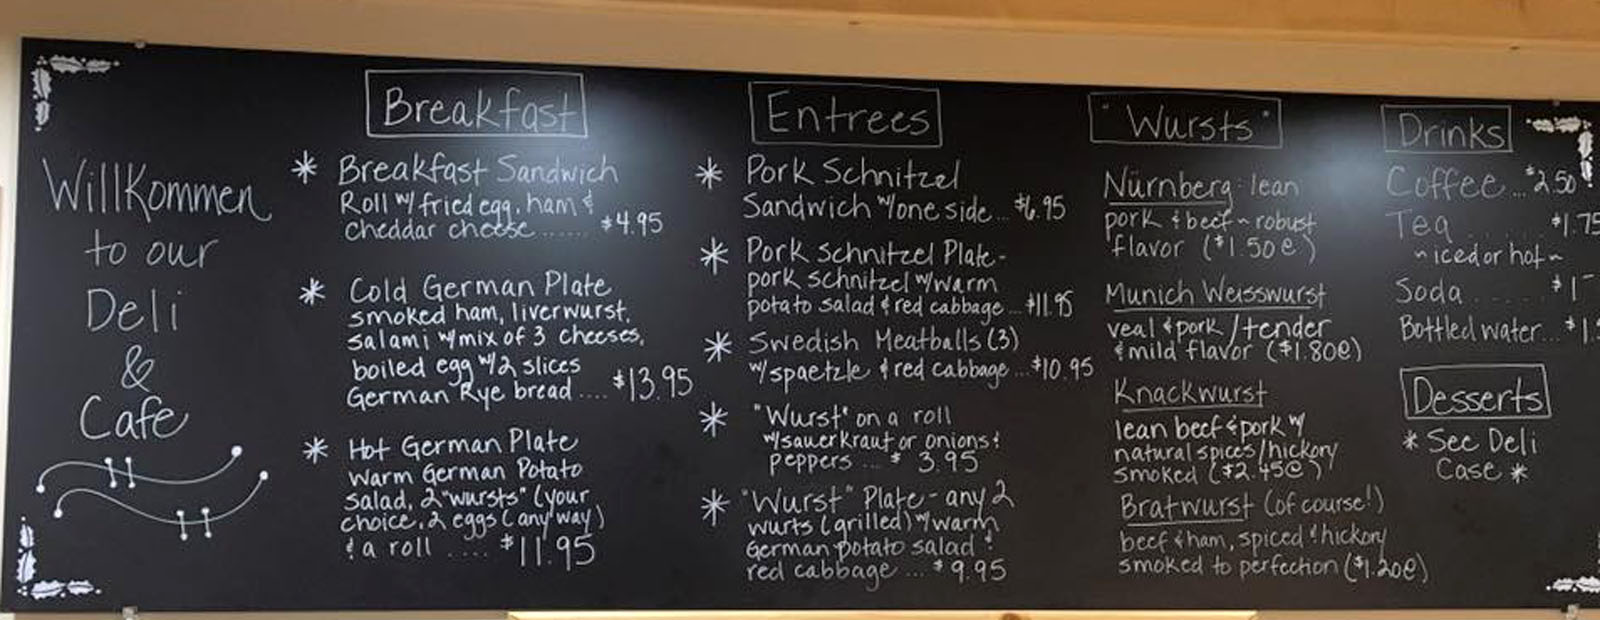 Willkommen
to our
Deli
&
Cafe
Breakfast
* Breakfast Sandwich
Roll w/ fried egg, ham &
cheddar cheese ...... $4.95
* Cold German Plate
smoked ham, liverwurst,
salami w/ mix of 3 cheeses,
boiled egg w/ 2 slices
German Rye bread .... $13.95
* Hot German Plate
Warm German Potato
salad, 2 "wursts" (your
choice, 2 eggs (any way)
& a roll .... $11.95
Entrees
* Pork Schnitzel
Sandwich w/ one side... $6.95
* Pork Schnitzel Plate-
pork schnitzel w/ warm
potato salad & red cabbage... $11.95
* Swedish Meatballs (3)
w/ spaetzle & red cabbage... $10.95
* "Wurst" on a roll
w/ sauerkraut or onions &
peppers ... $ 3.95
* "Wurst" Plate - any 2
wurts (grilled) w/ warm
German potato salad &
red cabbage ... $ 9.95
"Wursts"
Nürnberg: lean
pork & beef ~ robust
flavor ($1.50@)
Munich Weisswurst
veal & pork / tender
& mild flavor ($1.80@)
Knackwurst
lean beef & pork w/
natural spices/hickory
smoked ($2.45@)
Bratwurst (of course!)
beef & ham, spiced & hickory
smoked to perfection ($1.20@)
Drinks
Coffee ... $2.50
Tea ..... $1.75
~ iced or hot ~
Soda ..... $1
Bottled water... $1.
Desserts
* See Deli
Case *